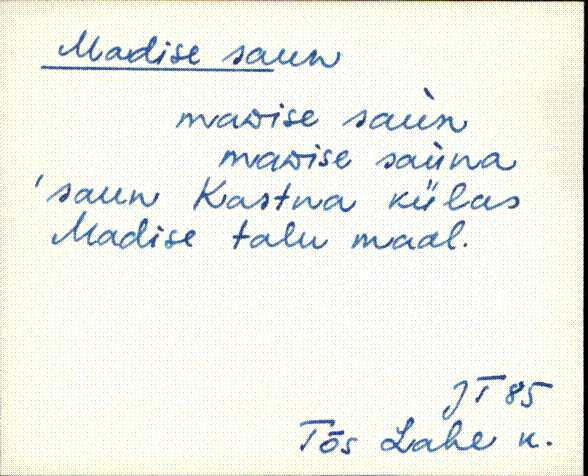 Madise saun
maᴅise saùn
maᴅise saùna
'saun Kastna külas
Madise talu maal.
JT 85
Tõs Lahe k.